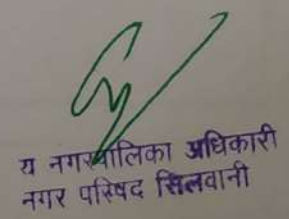 य नगरपालिका अधिकारी
नगर परिषद सिलवानी